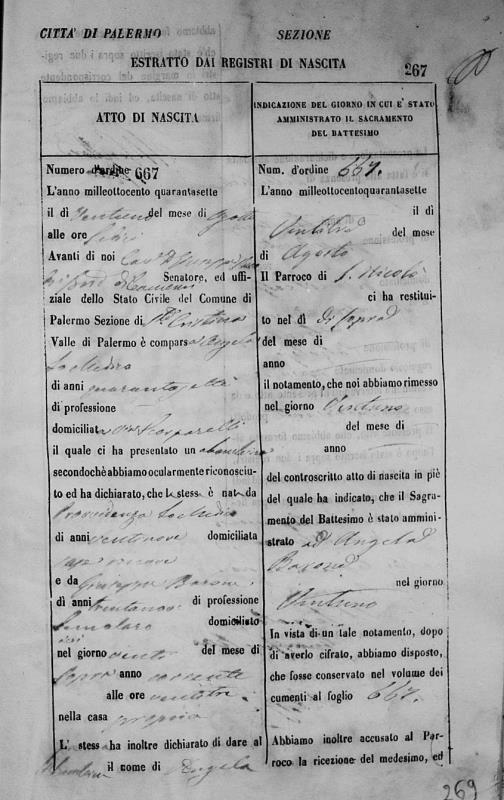 CITTÀ DI PALERMO
SEZIONE
ESTRATTO DAI REGISTRI DI NASCITA
267
ATTO DI NASCITA
Numero d'ordine 667
L'anno milleottocento quarantasette
il dì Ventuno del mese di Agosto
alle ore
Avanti di noi Cav.
Senatore, ed uffi-
ziale dello Stato Civile del Comune di
Palermo Sezione di Sta Cristina
Valle di Palermo è compars a Angela
Lo Medico
di anni quarantasette
di professione
domiciliat a
il quale ci ha presentato un a bambina
secondochè abbiamo ocularmente riconosciu-
to ed ha dichiarato, che la stess a è nat a da
Provvidenza Lo Medico
di anni ventinove domiciliata
e da Giuseppe Barone
di anni trentanove di professione
domiciliato
ivi
nel giorno venti del mese di
sopra anno corrente
alle ore ventitre
nella casa propria
L' stess ha inoltre dichiarato di dare al
bambina il nome di Angela
INDICAZIONE DEL GIORNO IN CUI E' STATO
AMMINISTRATO IL SACRAMENTO
DEL BATTESIMO
Num. d'ordine 667.
L'anno milleottocentoquarantasette
il dì
Ventitre del mese
di Agosto
Il Parroco di S. Nicolò
ci ha restitui-
to nel dì di sopra
del mese di
anno
il notamento, che noi abbiamo rimesso
nel giorno Ventuno
del mese di
anno
del controscritto atto di nascita in piè
del quale ha indicato, che il Sagra-
mento del Battesimo è stato ammini-
strato ad Angela
Barone
nel giorno
Ventuno
In vista di un tale notamento, dopo
di averlo cifrato, abbiamo disposto,
che fosse conservato nel volume dei
cumenti al foglio 667.
Abbiamo inoltre accusato al Par-
roco la ricezione del medesimo, ed
269